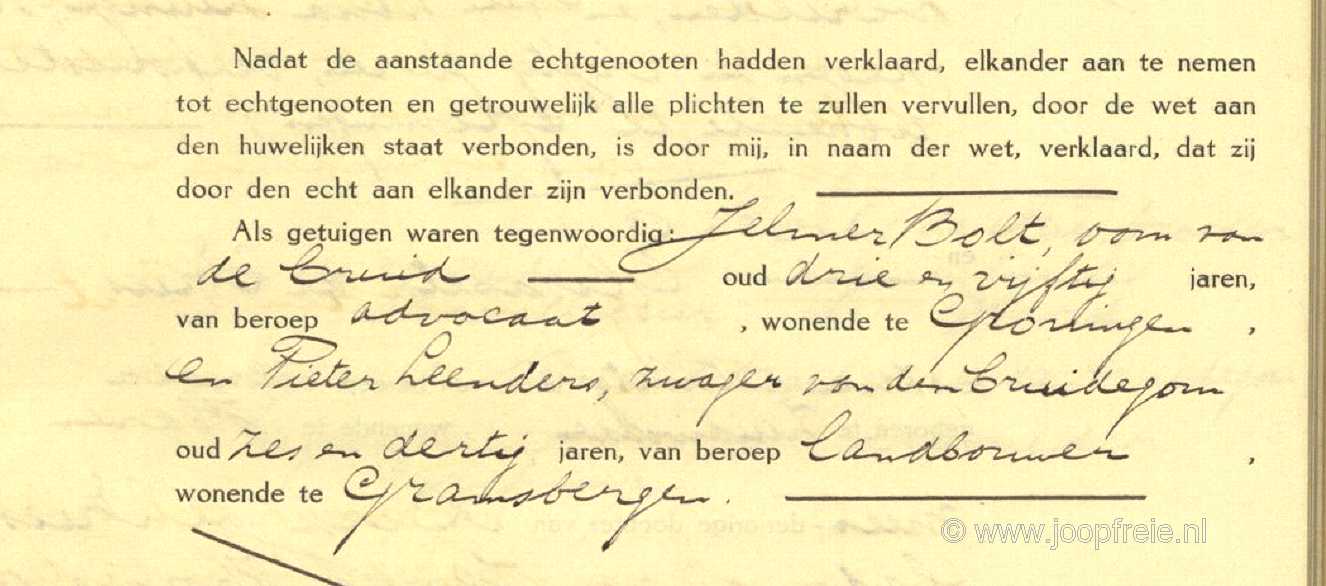 Nadat de aanstaande echtgenooten hadden verklaard, elkander aan te nemen
tot echtgenooten en getrouwelijk alle plichten te zullen vervullen, door de wet aan
den huwelijken staat verbonden, is door mij, in naam der wet, verklaard, dat zij
door den echt aan elkander zijn verbonden.
Als getuigen waren tegenwoordig: Jelmer Bolt, oom van
de bruid oud drie en vijftig jaren,
van beroep advocaat, wonende te Groningen,
en Pieter Leenders, zwager van den bruidegom
oud zes en dertig jaren, van beroep landbouwer,
wonende te Gramsbergen.
© www.joopfreie.nl